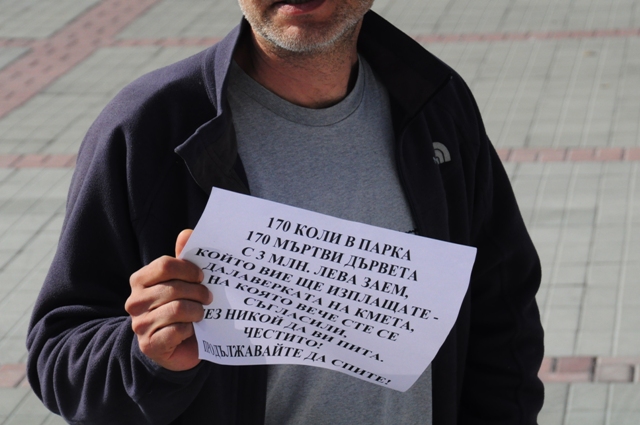 170 КОЛИ В ПАРКА
170 МЪРТВИ ДЪРВЕТА
С 3 МЛН. ЛЕВА ЗАЕМ,
КОЙТО ВИЕ ЩЕ ИЗПЛАЩАТЕ -
ДАЛАВЕРКАТА НА КМЕТА,
НА КОЯТО ВЕЧЕ СТЕ СЕ
СЪГЛАСИЛИ,
БЕЗ НИКОЙ ДА ВИ ПИТА.
ЧЕСТИТО!
ПРОДЪЛЖАВАЙТЕ ДА СПИТЕ!